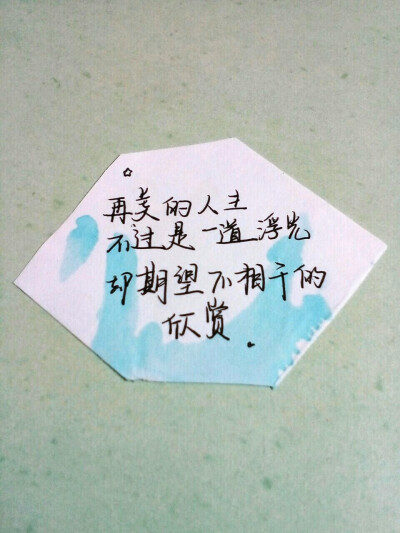 再美的人生
不过是一道浮光
却期望不相干的
欣赏